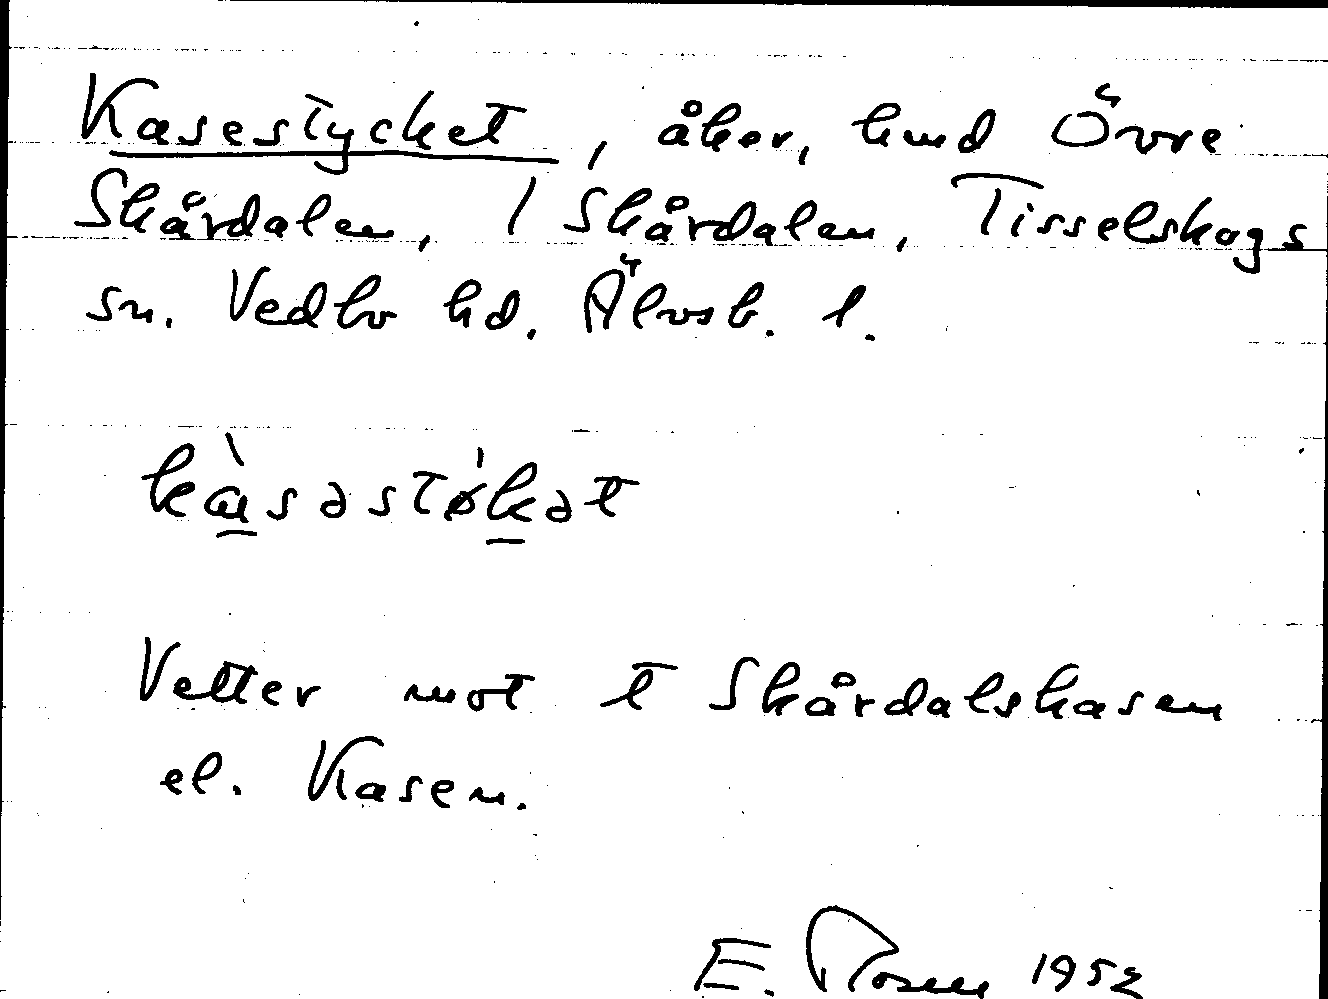 Kasestycket, åker, hmd Övre
Skårdalen, 1 Skårdalen, Tisselskogs
sn. Vedbo hd. Älvsb. l.
kàsəstø̀kət
Vetter mot t Skårdalskasen
el. Kasen.
E. Rosen 1952